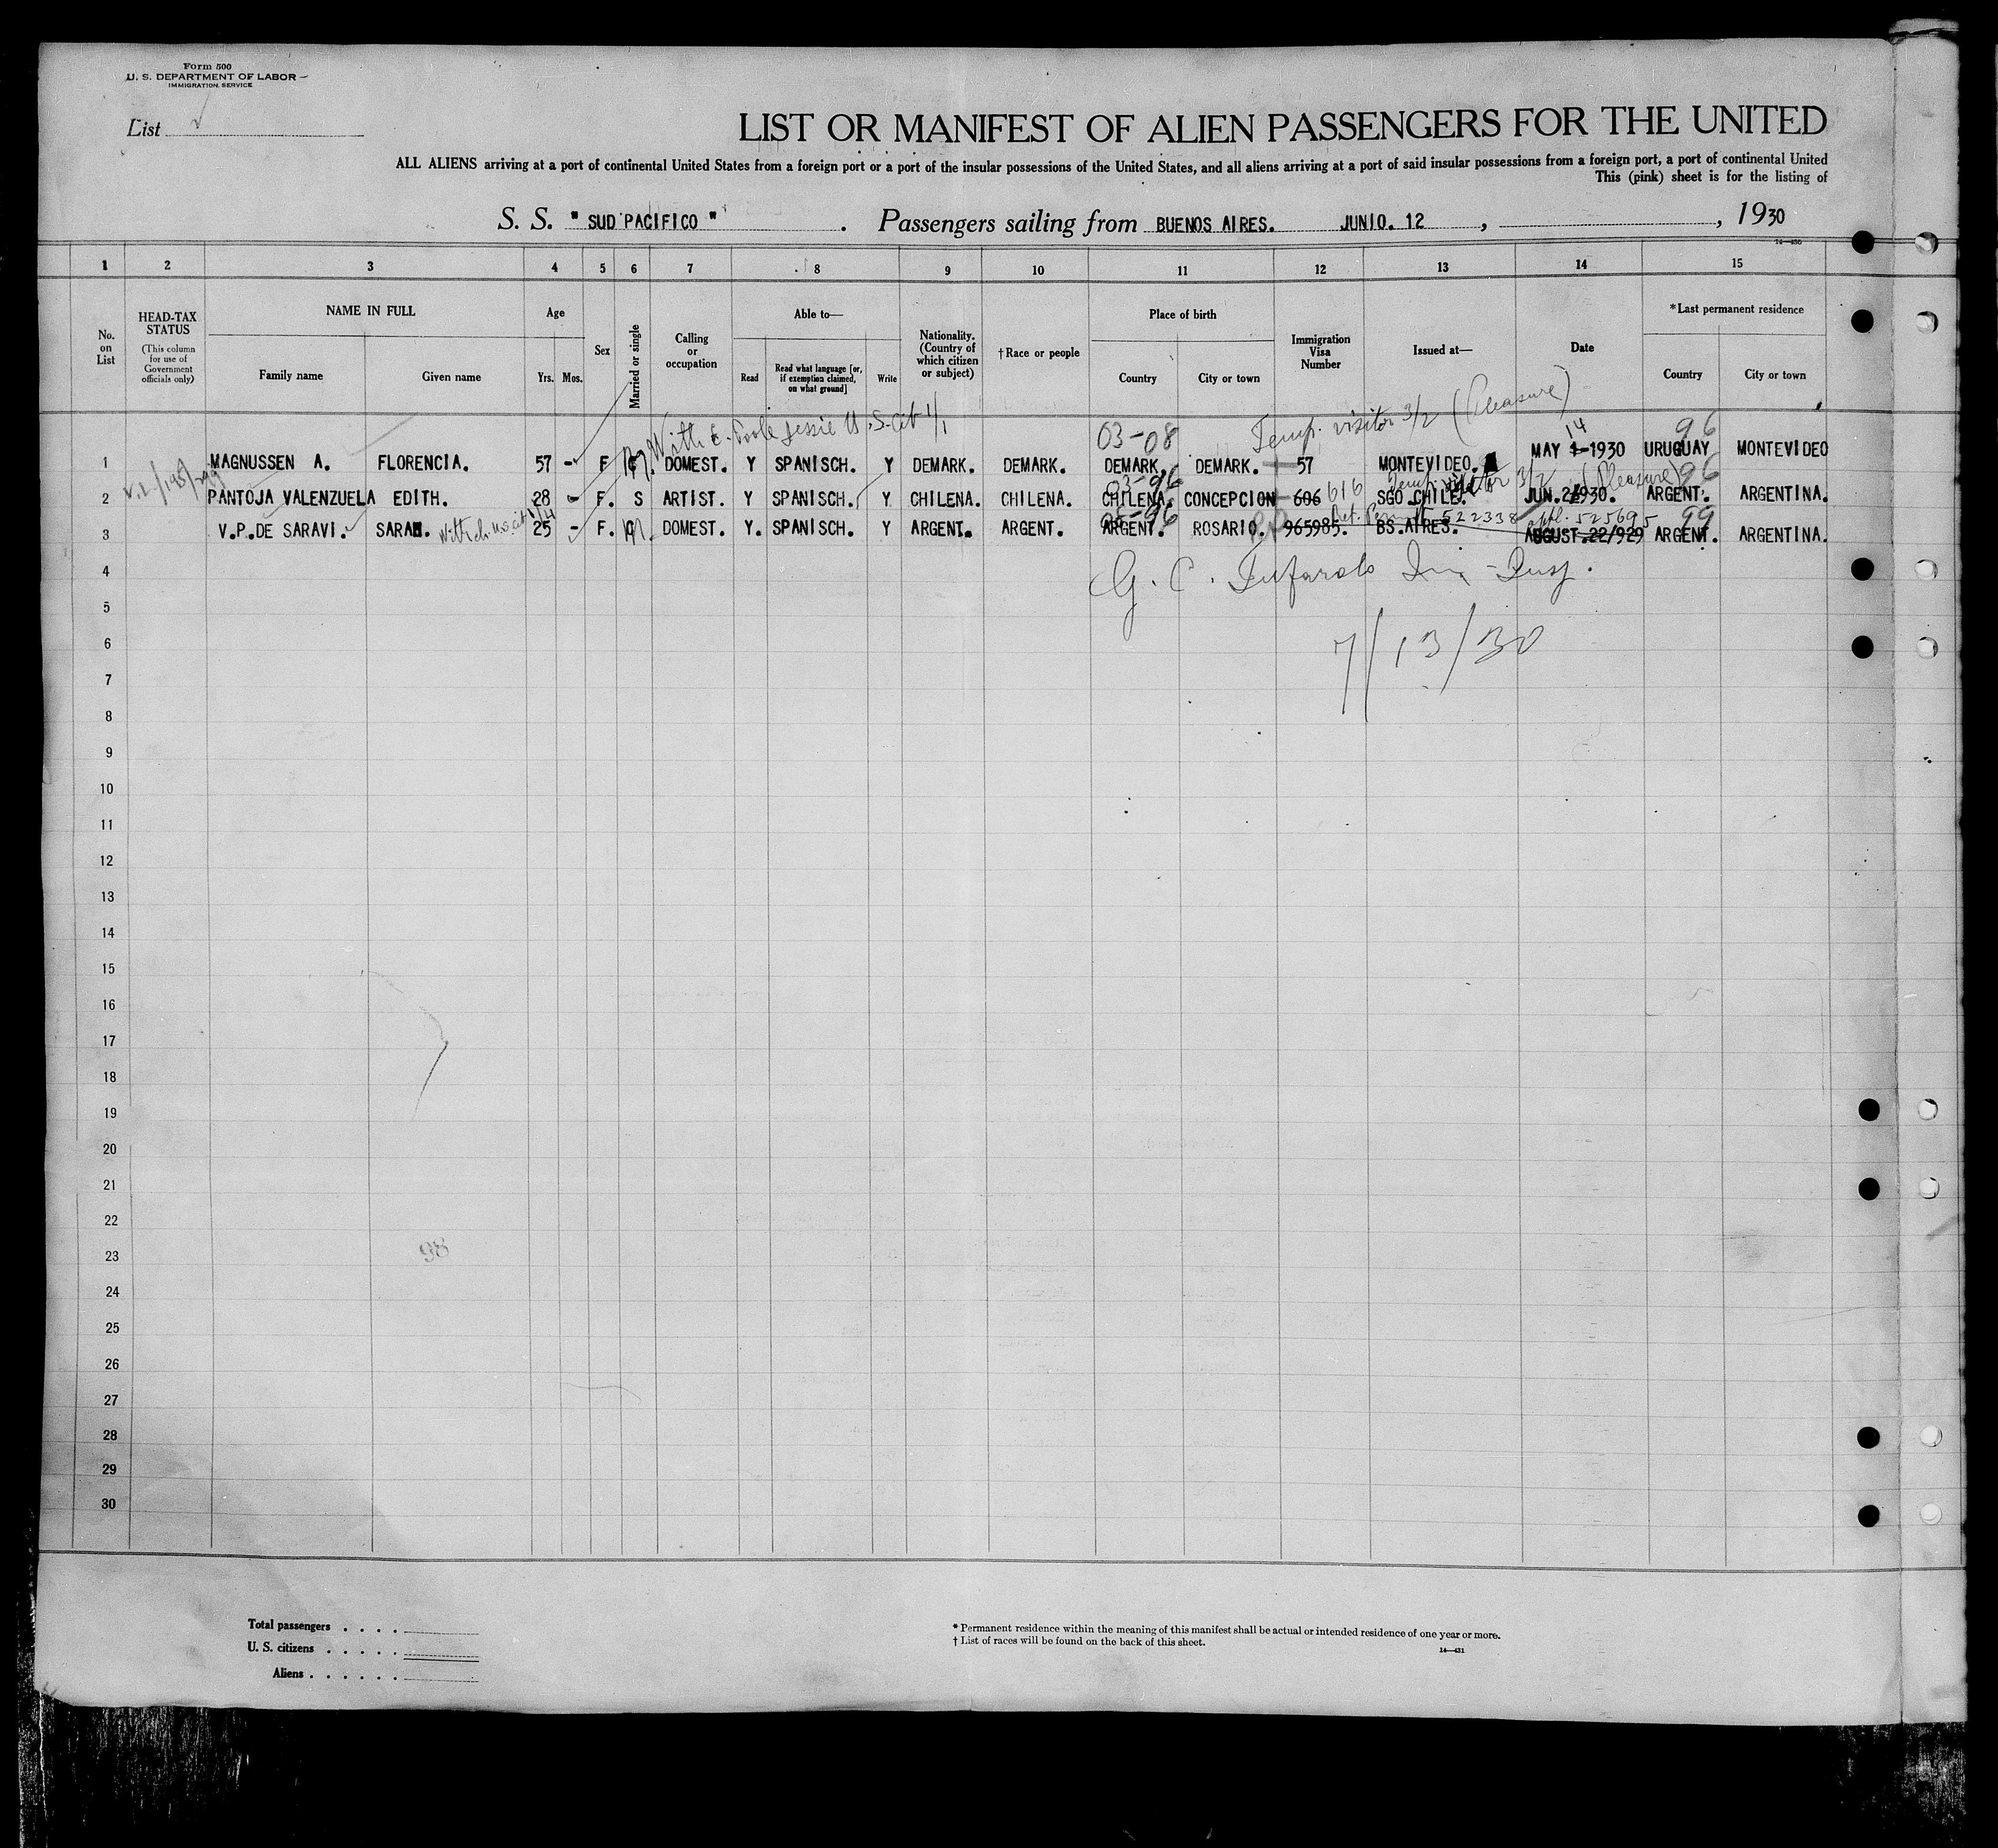 Form 500
U. S. DEPARTMENT OF LABOR
IMMIGRATION SERVICE
List
LIST OR MANIFEST OF ALIEN PASSENGERS FOR THE UNITED
ALL ALIENS arriving at a port of continental United States from a foreign port or a port of the insular possessions of the United States, and all aliens arriving at a port of said insular possessions from a foreign port, a port of continental United
This (pink) sheet is for the listing of
S. S. " SUD PACIFICO ". Passengers sailing from BUENOS AIRES. JUNIO. 12 , , 1930
1 2 3 4 5 6 7 8 9 10 11 12 13 14 15
No. on List
HEAD-TAX STATUS
(This column for use of Government officials only)
NAME IN FULL
Family name Given name
Age
Yrs. Mos.
Sex
Married or single
Calling or occupation
Able to—
Read
Read what language [or, if exemption claimed, on what ground]
Write
Nationality. (Country of which citizen or subject)
†Race or people
Place of birth
Country City or town
Immigration Visa Number
Issued at—
Date
*Last permanent residence
Country City or town
With U.S. cit 1/1 03-08 Temp. visitor 3/2 (Pleasure) 14 96
1 MAGNUSSEN A. FLORENCIA. 57 - F M. DOMEST. Y SPANISCH. Y DEMARK. DEMARK. DEMARK. DEMARK. 57 MONTEVIDEO. MAY 1-1930 URUGUAY MONTEVIDEO
03-96 Temp. visitor 3/2 (Pleasure) 96
2 PANTOJA VALENZUELA EDITH. 28 - F. S ARTIST. Y SPANISCH. Y CHILENA. CHILENA. CHILENA. CONCEPCION 606 616 SGO CHILE. JUN.2/930. ARGENT. ARGENTINA.
05-96 Ret. Permit 522338 525695 99
3 V.P.DE SARAVI. SARAH. With ch. U.S. cit 25 - F. M. DOMEST. Y. SPANISCH. Y ARGENT. ARGENT. ARGENT. ROSARIO. 965985. BS.AIRES. AUGUST.22/929 ARGENT. ARGENTINA.
4
G. C.
5
6
7/13/30
7
8
9
10
11
12
13
14
15
16
17
18
19
20
21
22
23
98
24
25
26
27
28
29
30
Total passengers . . . .
U. S. citizens . . . . .
Aliens . . . . . .
* Permanent residence within the meaning of this manifest shall be actual or intended residence of one year or more.
† List of races will be found on the back of this sheet.
14—431